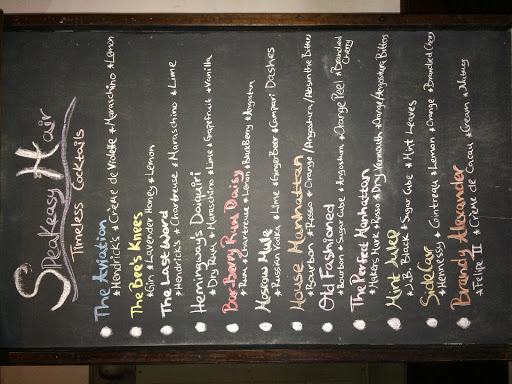 Speakeasy Hair
Timeless Cocktails
The Aviation
*Hendrick's *Crème de Violette *Maraschino *Lemon
The Bee's Knees
*Gin *Lavender Honey *Lemon
The Last Word
*Hendrick's *Chartreuse *Maraschino *Lime
Hemingway's Daquiri
*Dry Rum *Maraschino *Lime *Grapefruit *Vanilla
Bar-Berry Rum Daisy
*Rum *Chartreuse *Lemon *BlackBerry *Angostura
Moscow Mule
*Russian Vodka *Lime *Ginger Beer *Campari Dashes
House Manhattan
*Bourbon *Rosso *Orange/Angostura/Absinthe Bitters
Old Fashioned
*Bourbon *Sugar Cube *Angostura *Orange Peel *Brandied Cherry
The Perfect Manhattan
*Makers Mark *Rosso *Dry Vermouth *Orange/Angostura Bitters
Mint Julep
*J.B. Black *Sugar Cube *Mint Leaves
SideCar
*Hennessy *Cointreau *Lemon *Orange *Brandied Cherry
Brandy Alexander
*Felipe II *Crème de Cacau *Cream *Nutmeg